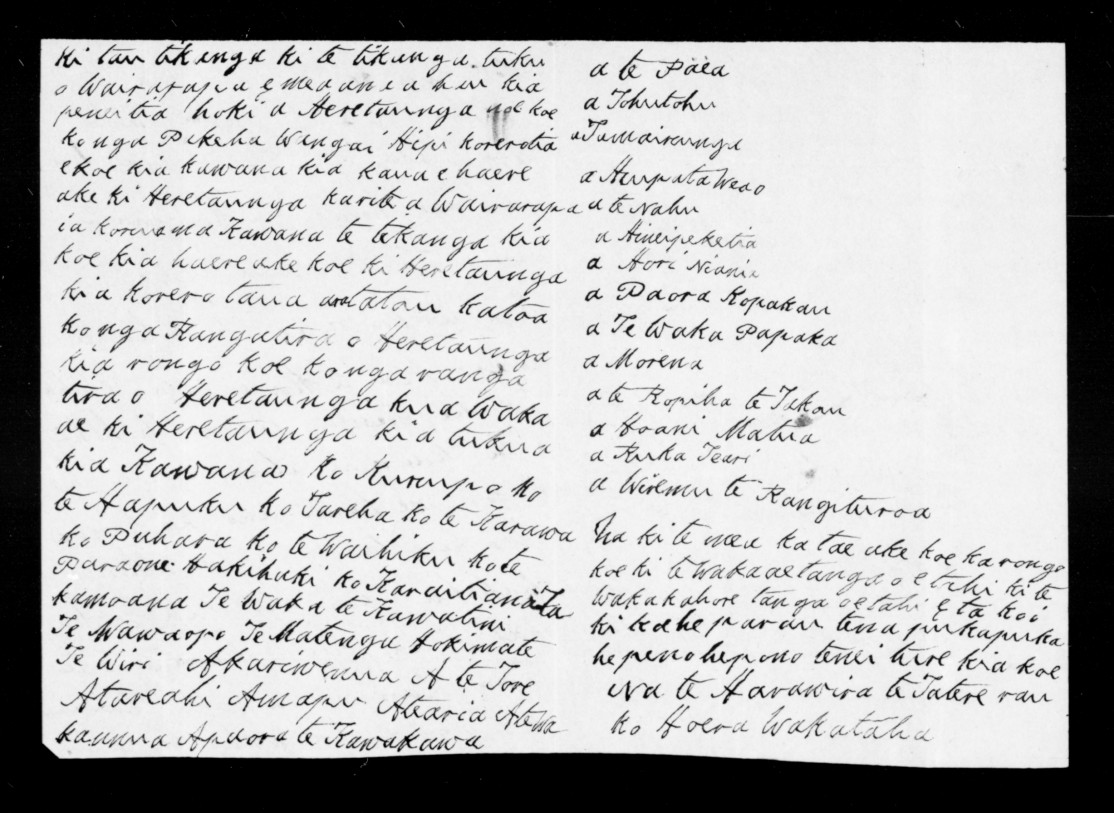 ki tau tikanga ki te tikanga tuku
o Wairarapa e mea ana a hau kia
peneitia hoki a Heretaunga koe
ko nga Pakeha Wangai Hipi korerotia
e koe kia kawana kia kaua e haere
ake ki Heretaunga karite a Wairarapa
ia korerona Kawana te tikanga kia
koe kia haere ake koe ki Heretaunga
kia korero taua tatau katoa
ko nga Rangatira o Heretaunga
kia rongo koe ko nga ranga
tira o Heretaunga kua Waka
ae ki Heretaunga kia tukua
kia Kawana ko Kurupo ko
te Hapuku ko Tareha ko te Karawa
ko Puhara ko te Waihiku ko te
Paraone Hakihaki ko Karaitiana Ta
kamoana Te Waka te Kawatini
Te Wawaopo Te Matenga Hokimate
Te Wiri Akariwenua A te Tore
Atareahi Amapu Atearia Atewa
kaunua Apaora te Kawakawa
a te Paea
a Tohutohu
a Tamairunga
a Hurpata Weao
a te Nahu
a Hineipeketia
a Hori Niania
a Paora Kopakau
a Te Waka Papaka
a Morena
a te Ropiha te Takau
a Hoani Matua
a Ruka Teari
a Wiremu te Rangituroa
Na ki te mea ka tae ake koe ka rongo
koe ki te wakaaetanga o etehi ki te
wakakahore tanga o etahi e ta koi
ki kehe parau tena pukapuka
he pono he pono tenei ture kia koe
Na te Harawira te Tatere rau
ko Hoera Wakataha